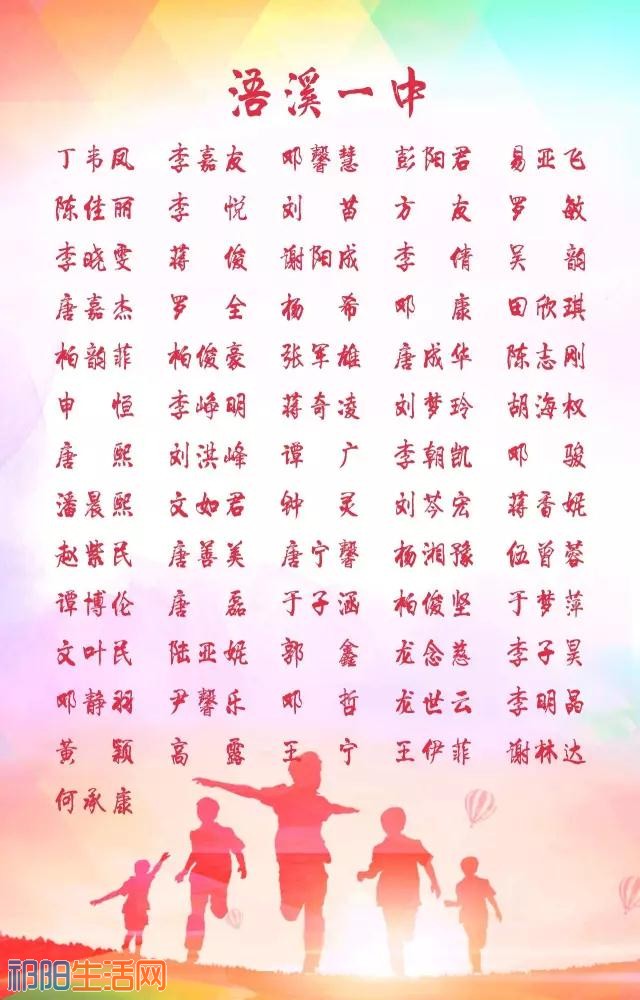 浯溪一中
丁韦凤 李嘉友 邓馨慧 彭阳君 易亚飞
陈佳丽 李悦 刘苗 方友 罗敏
李晓雯 蒋俊 谢阳成 李倩 吴韵
唐嘉杰 罗全 杨希 邓康 田欣琪
柏韵菲 柏俊豪 张军雄 唐成华 陈志刚
申恒 李峥明 蒋奇凌 刘梦玲 胡海权
唐熙 刘洪峰 谭广 李朝凯 邓骏
潘晨熙 文如君 钟灵 刘芩宏 蒋香妮
赵紫民 唐善美 唐宁馨 杨湘豫 伍曾蓉
谭博伦 唐磊 于子涵 柏俊坚 于梦萍
文叶民 陆亚妮 郭鑫 龙念慈 李子昊
邓静羽 尹馨乐 邓哲 龙世云 李明晶
黄颖 高露 王宁 王伊菲 谢林达
何承康
祁阳生活网